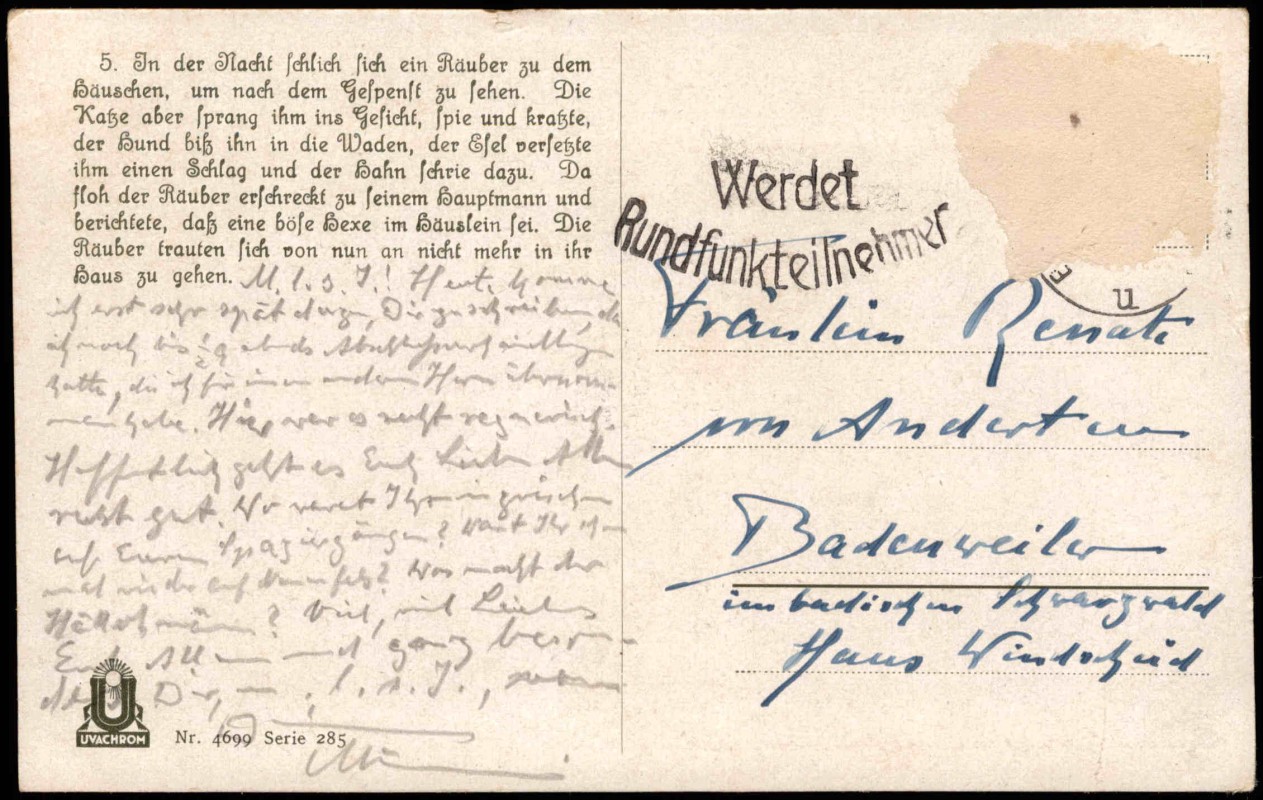 5. In der Nacht schlich sich ein Räuber zu dem
Häuschen, um nach dem Gespenst zu sehen. Die
Katze aber sprang ihm ins Gesicht, spie und kratzte,
der Hund biß ihn in die Waden, der Esel versetzte
ihm einen Schlag und der Hahn schrie dazu. Da
floh der Räuber erschreckt zu seinem Hauptmann und
berichtete, daß eine böse Hexe im Häuslein sei. Die
Räuber trauten sich von nun an nicht mehr in ihr
Haus zu gehen.
M. l. s. I.! Heute komme
ich erst sehr spät dazu, Dir zu schreiben, da
ich noch bis abends
hatte, die ich für einen anderen Herrn übernom-
men habe. Hier war es recht regnerisch.
Hoffentlich geht es Euch Lieben Allen
recht gut. Wo waret Ihr inzwischen
auf Euren Spaziergängen? Wart Ihr schon
mal wieder auf Was macht der
? Viel, viel Liebes
Euch Allen und ganz beson-
ders Dir, m. l. s. I., von
UVACHROM
Nr. 4699 Serie 285
Werdet
Rundfunkteilnehmer
u
Fräulein Renate
von Anderten
Badenweiler
im badischen Schwarzwald
Haus Windschild